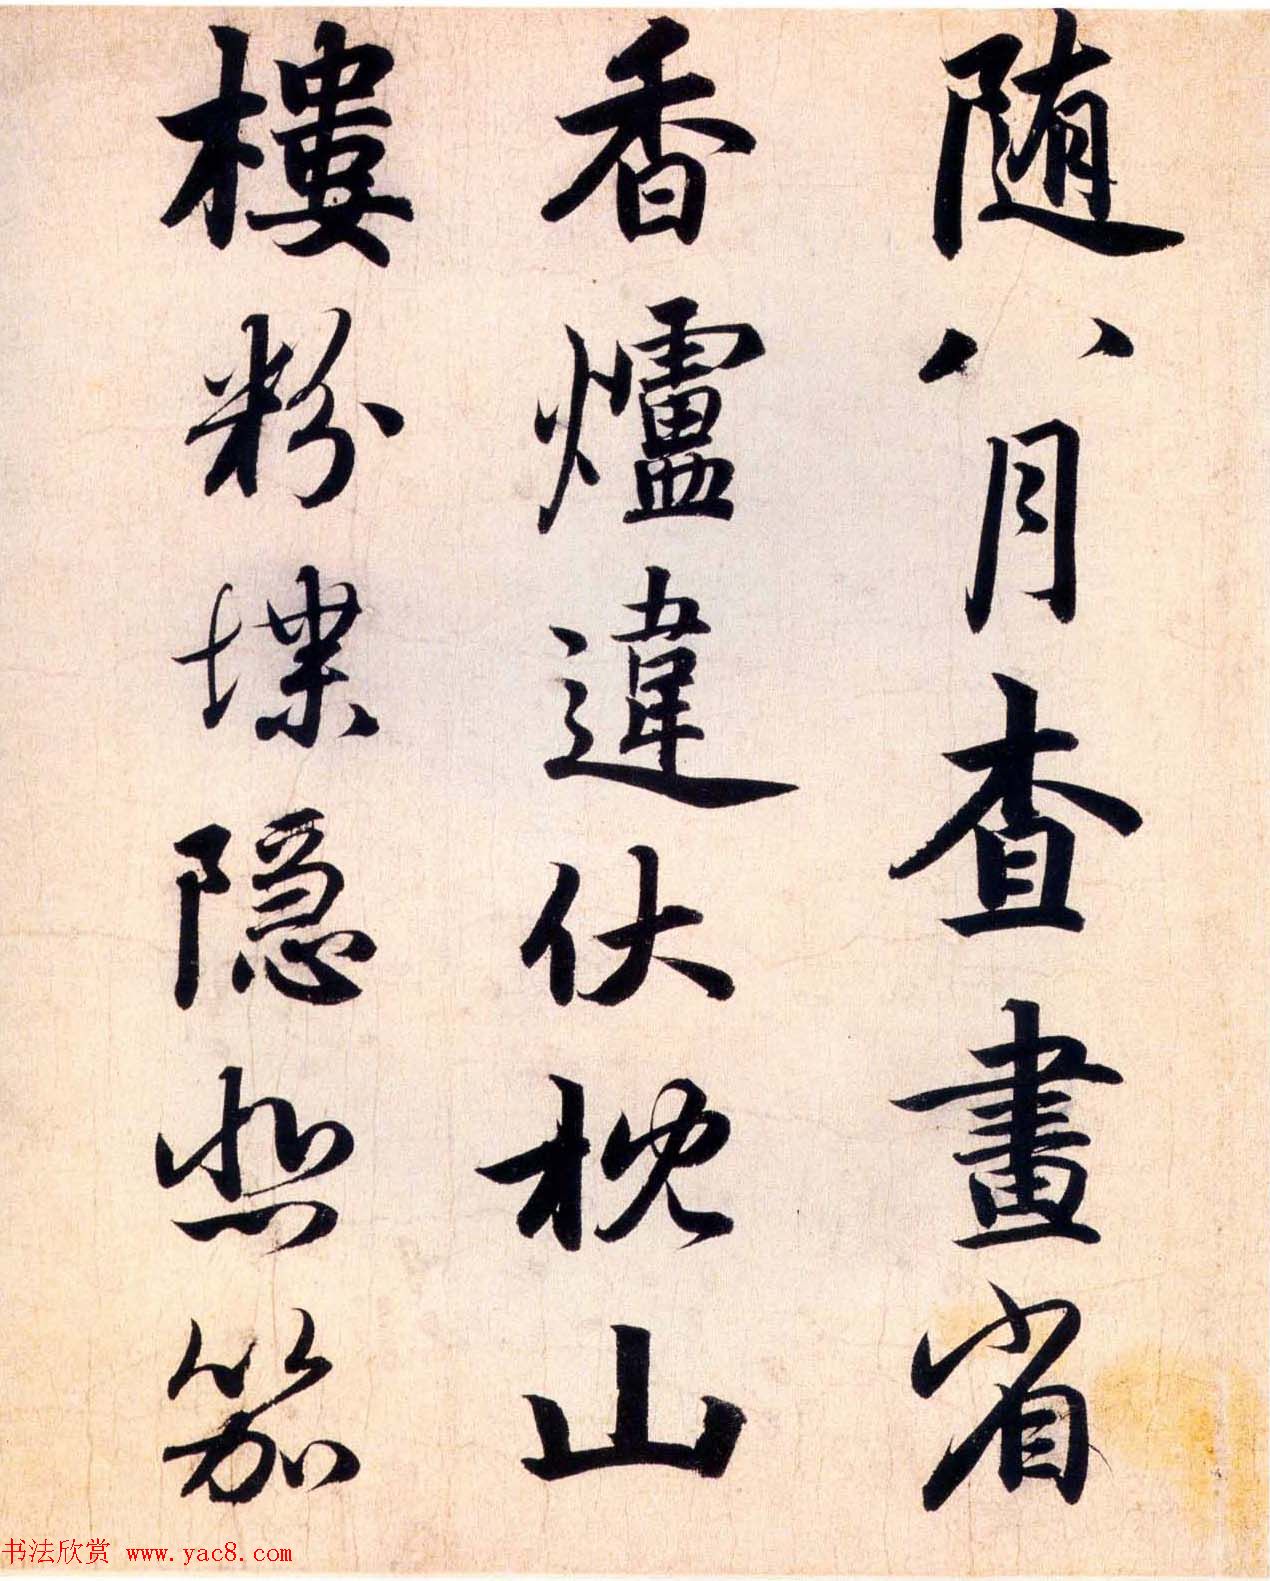 随八月查畫省
香爐違伏枕山
樓粉堞隐悲笳
书法欣赏 www.yac8.com